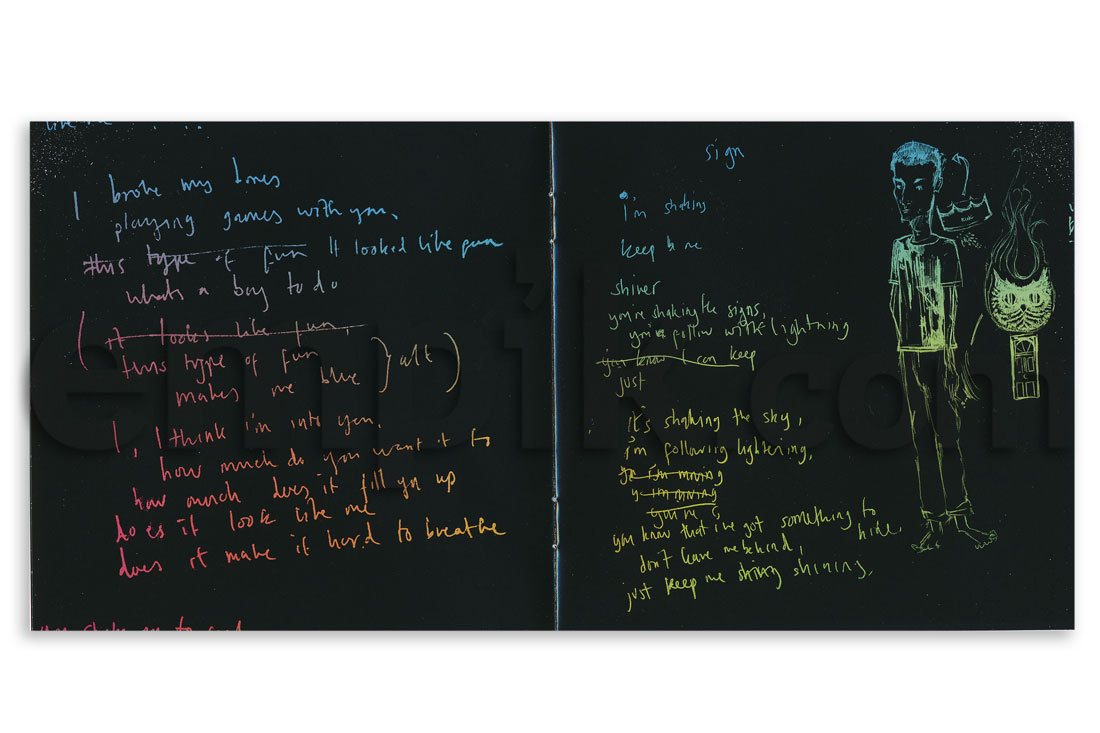 like me
I broke my bones
playing games with you,
this type of fun It looked like fun
whats a boy to do
( it looks like fun
this type of fun
makes me blue } alt )
I, I think i'm into you,
how much do you want it to
how much does it fill you up
does it look like me
does it make it hard to breathe
sign
i'm shaking
keep to me
shiver
you're shaking the signs,
you're follow with lightning
you know I can keep
just
it's shaking the sky,
i'm following lightening,
i'm moving
i'm moving
you're
you know that i've got something to
hide,
don't leave me behind,
just keep me shining,
empik.com